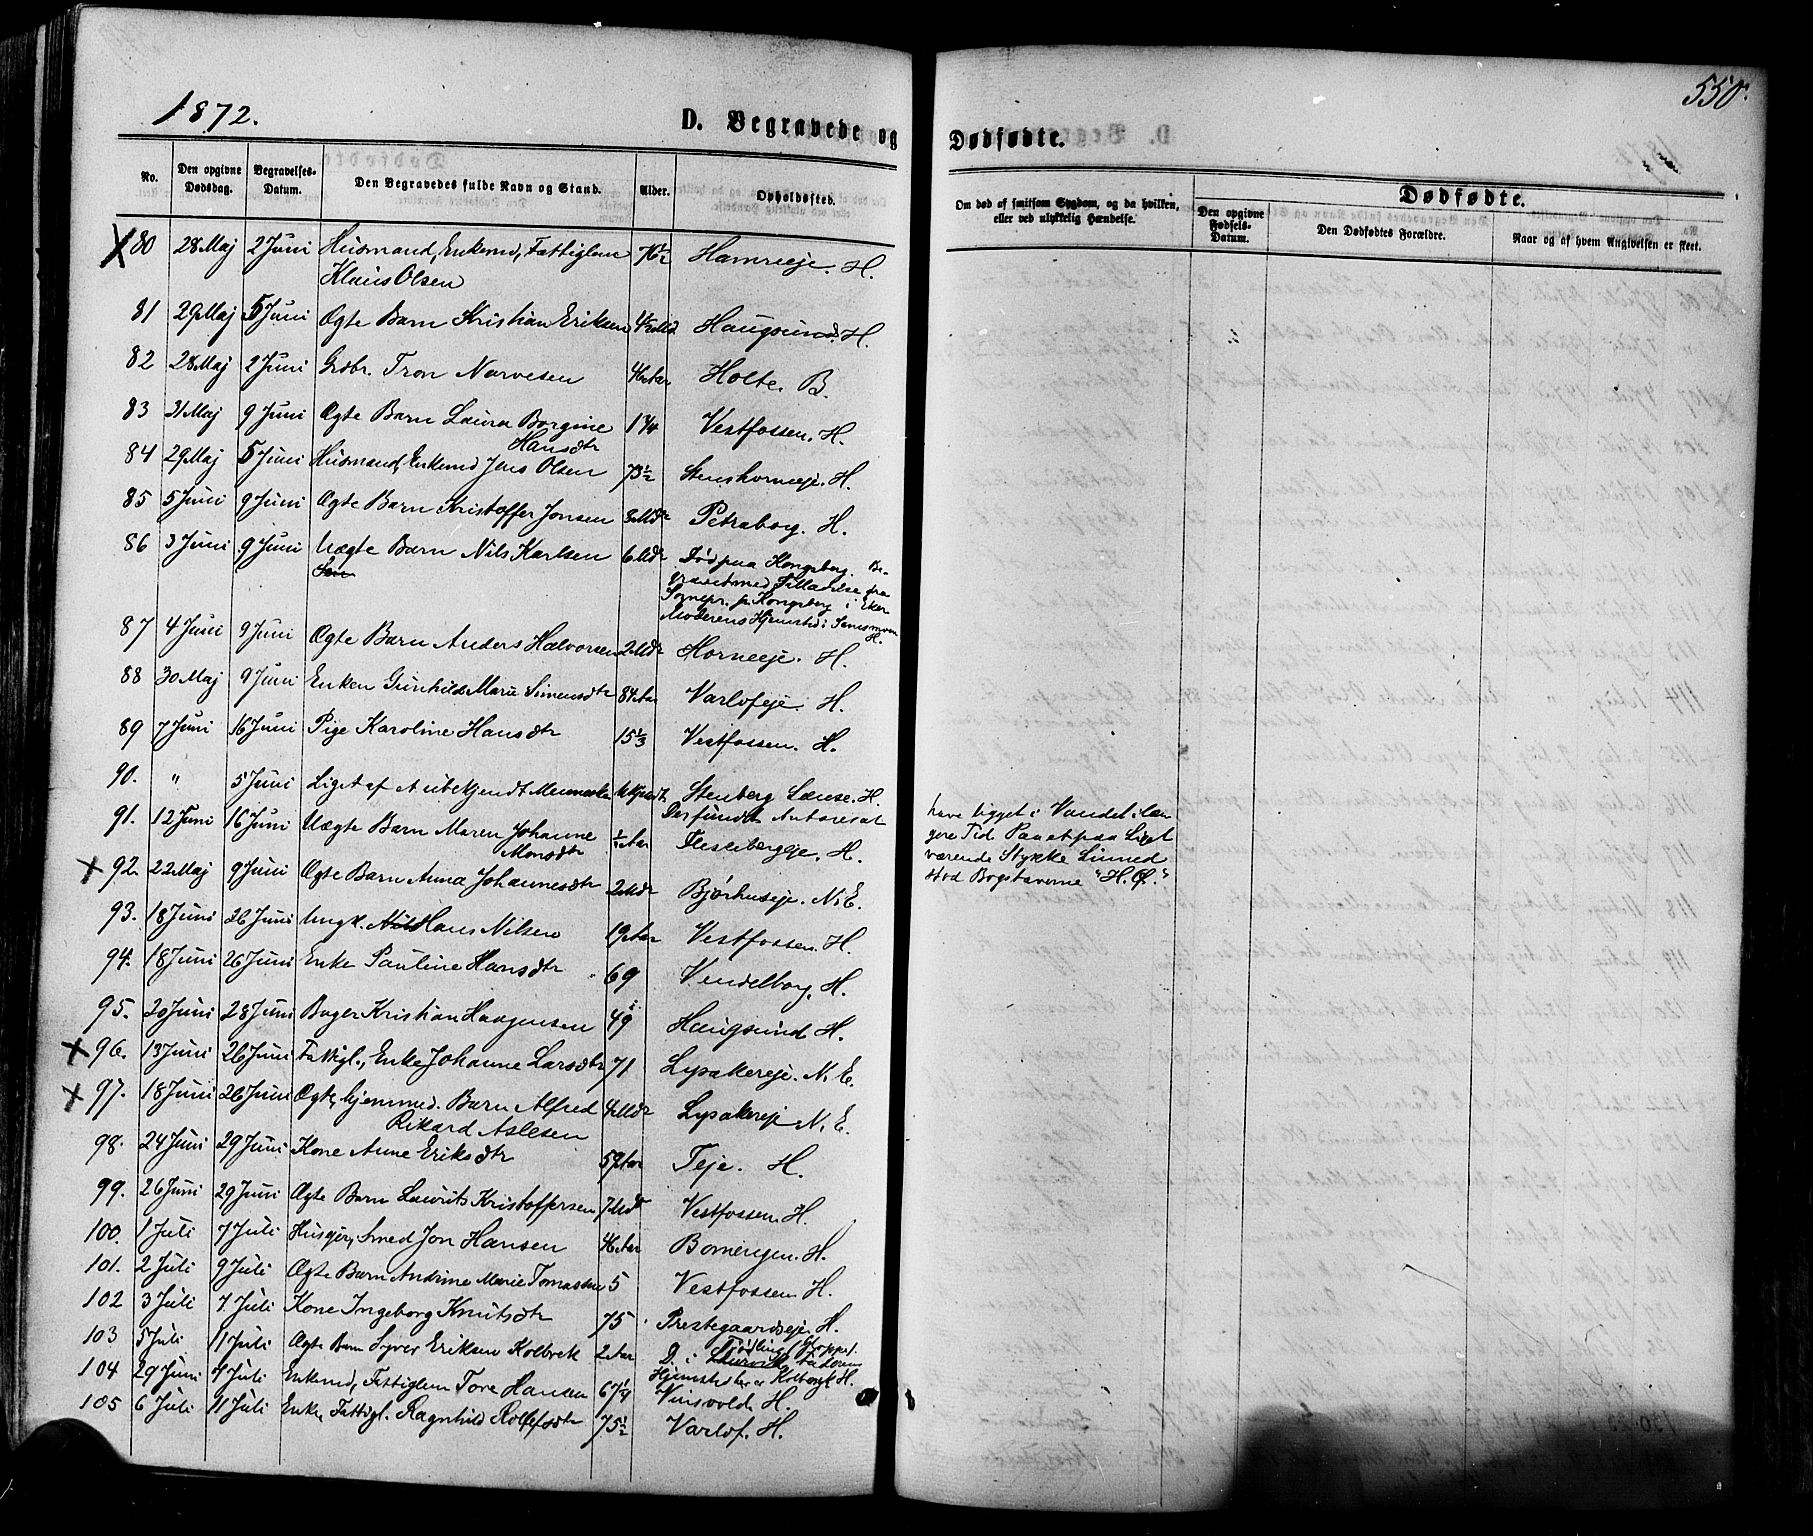 1872.
D. Begravede og
Dødfødte.
550.
No. Den opgivne Dødsdag. Begravelses-Datum. Den Begravedes fulde Navn og Stand. Alder. Opholdssted.
Om død af smitsom Sygdom, og da hvilken, eller ved ulykkelig Hændelse. Den opgivne Fødsels-Datum. Den Dødfødtes Forældre. Naar og af hvem Angivelsen er skeet.
Dødfødte.
X 80 28 Maj 2 Juni Husmand, Enkemd, Fattiglem 76½ Hamreeje. H.
Klaus Olsen
81 29 Maj 5 Juni Ægte Barn Kristian Eriksen 4½ Md Haugsund. H.
82 28 Maj 2 Juni Grdbr. Tron Narvesen 46 Aar Holte. B.
83 31 Maj 9 Juni Ægte Barn Laura Borgine 1¾ Vestfossen. H.
Hansdtr
84 29 Maj 5 Juni Husmand, Enkemd Jens Olsen 73½ Stenshorneeje. H.
85 5 Juni 9 Juni Ægte Barn Kristoffer Jonsen 3 Mdr Petraborg. H.
86 3 Juni 9 Juni Uægte Barn Nils Karlsen 6 Mdr Død paa Kongsberg. Be-
gravet med Tilladelse fra
Sognepr. p. Kongsberg i Eker
Moderens Hjemsted: Semsmoen
H.
87 4 Juni 9 Juni Ægte Barn Anders Halvorsen 2 Mdr Horneeje. H.
88 30 Maj 9 Juni Enken Gunhild Marie Simensdtr 84 Aar Varlofeje. H.
89 7 Juni 16 Juni Pige Karoline Hansdtr 15⅓ Vestfossen. H.
90. " 5 Juni Liget af et ubekjendt Menneske ukjendt Stenberg Lænse. H.
Der fundet
have ligget i Vandet i læn
gere Tid Paa et paa Liget
værende Stykke Linned
stod Bogstaverne "H. Ø."
91. 12 Juni 16 Juni Uægte Barn Maren Johanne ½ Aar Flesebergeje. H.
Monsdtr
X 92. 22 Maj 9 Juni Ægte Barn Anna Johannesdtr 2 Mdr Bjørhuseje. N. E.
93. 18 Juni 26 Juni Ungk. Hans Nilsen 19 Aar Vestfossen. H.
94. 18 Juni 26 Juni Enke Pauline Hansdtr 69 Vendelborg. H.
95. 20 Juni 28 Juni Bager Kristian Haagensen 49 Haugsund H.
X 96. 13 Juni 26 Juni Fattigl., Enke Johanne Larsdtr 71 Lysakereje. N. E.
X 97. 18 Juni 26 Juni Ægte, hjemmed. Barn Alfred 4 Mdr Lysakereje N. E.
Rikard Aslesen
98. 24 Juni 29 Juni Kone Anne Eriksdtr 59 Aar Teje. H.
99. 26 Juni 29 Juni Ægte Barn Laurits Kristoffersen 7 Mdr Vestfossen. H.
100. 1 Juli 7 Juli Husejer, Smed Jon Hansen 46 Aar Bomengen. H.
101. 2 Juli 9 Juli Ægte Barn Andrine Marie Tomasdtr 5 Vestfossen H.
102 3 Juli 7 Juli Kone Ingeborg Knutsdtr 75 Prestegaardseje. H.
103 5 Juli 11 Juli Ægte Barn Syver Eriksen Kolbrek 2 Aar D. i
Hjemsted er Kolbrek H.
104 29 Juni 4 Juli Enkemd, Fattiglem Tore Hansen 67¼ Vinsvold. H.
105 6 Juli 11 Juli Enke, Fattigl. Ragnhild Rolfsdtr 75½ Varlof. H.